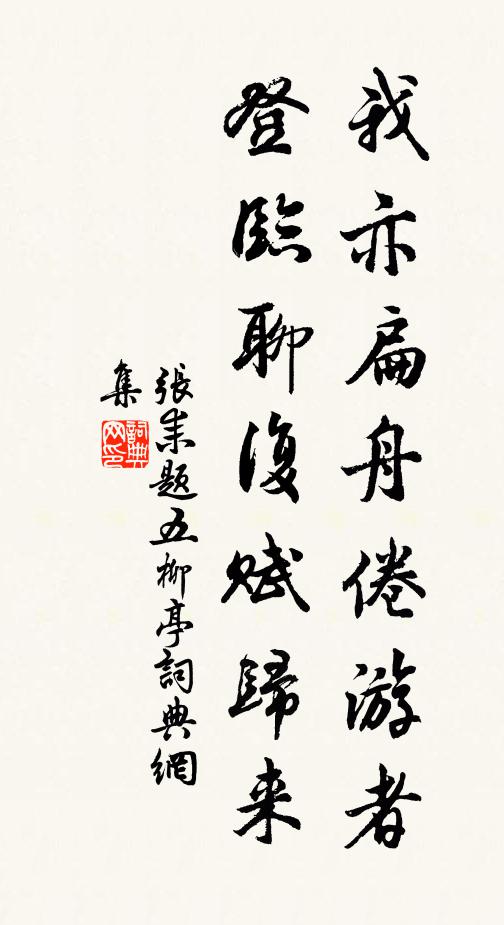 我亦扁舟倦游者
登臨聊復赋歸来
張耒题五柳亭詞典網
集
詞典網印